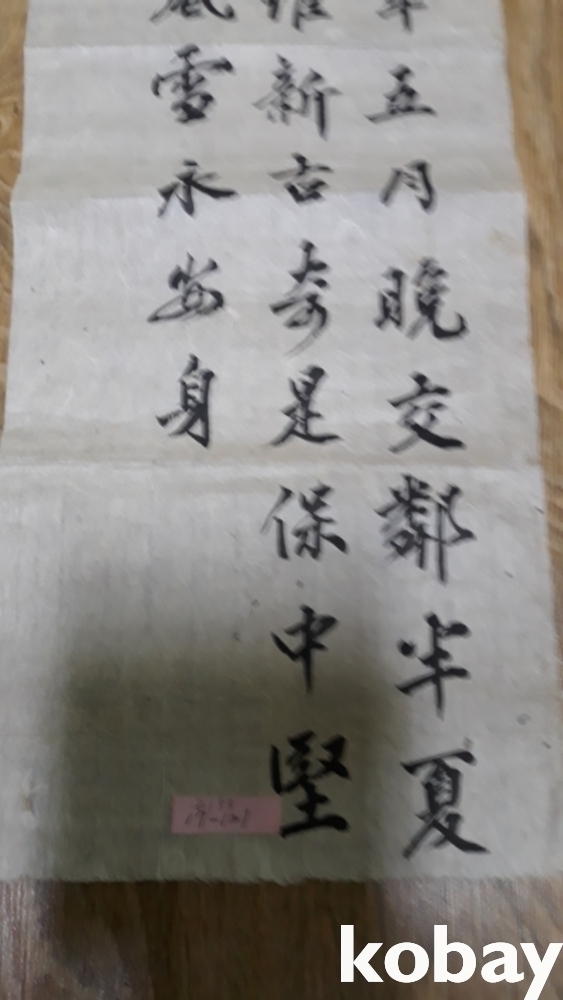 年五月晚交鄰半夏
維新古奇是保中堅
風雪永安身
kobay